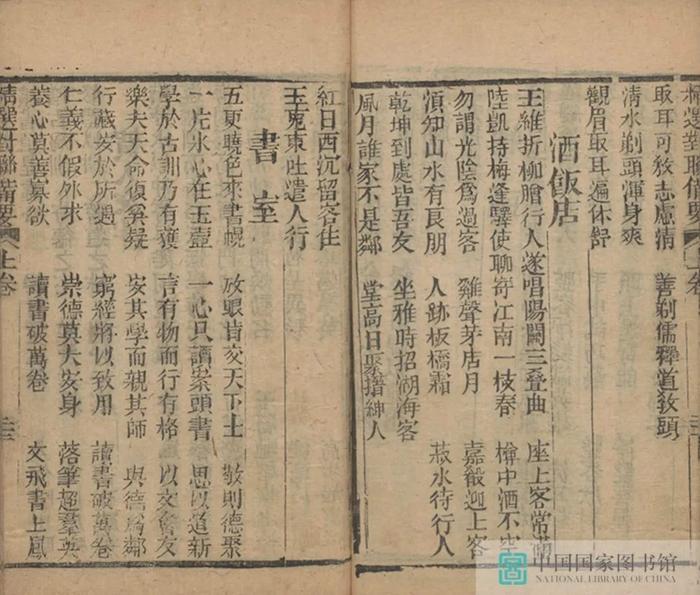 取耳可教志慮清 善剃儒釋道教頭
清水剃頭渾身爽
觀眉取耳遍体舒
酒飯店
王維折柳贈行人遂唱陽關三叠曲 座上客常滿
陸凱持梅逢驛使聊寄江南一枝春 樽中酒不空
勿謂光陰為過客 雞聲茅店月 嘉殽迎上客
須知山水有良朋 人跡板橋霜 菽水待行人
乾坤到處皆吾友 坐雅時招湖海客
風月誰家不是鄰 堂高日聚搢紳人
紅日西沉留客住
玉兎東吐遣人行
書室
五更曉色來書幌 放眼皆交天下士 敬則德聚
一片氷心在玉壺 一心只讀案頭書 思以道新
學於古訓乃有獲 言有物而行有格 以文會友
樂夫天命復奚疑 安其學而親其師 與德為鄰
行藏安於所遇 窮經將以致用 讀書破萬卷
仁義不假外求 崇德莫大安身 落筆超羣英
養心莫善寡欲 讀書破萬卷 文飛書上鳳
精選對聯備要 上卷 三
中国国家图书馆
NATIONAL LIBRARY OF CHINA